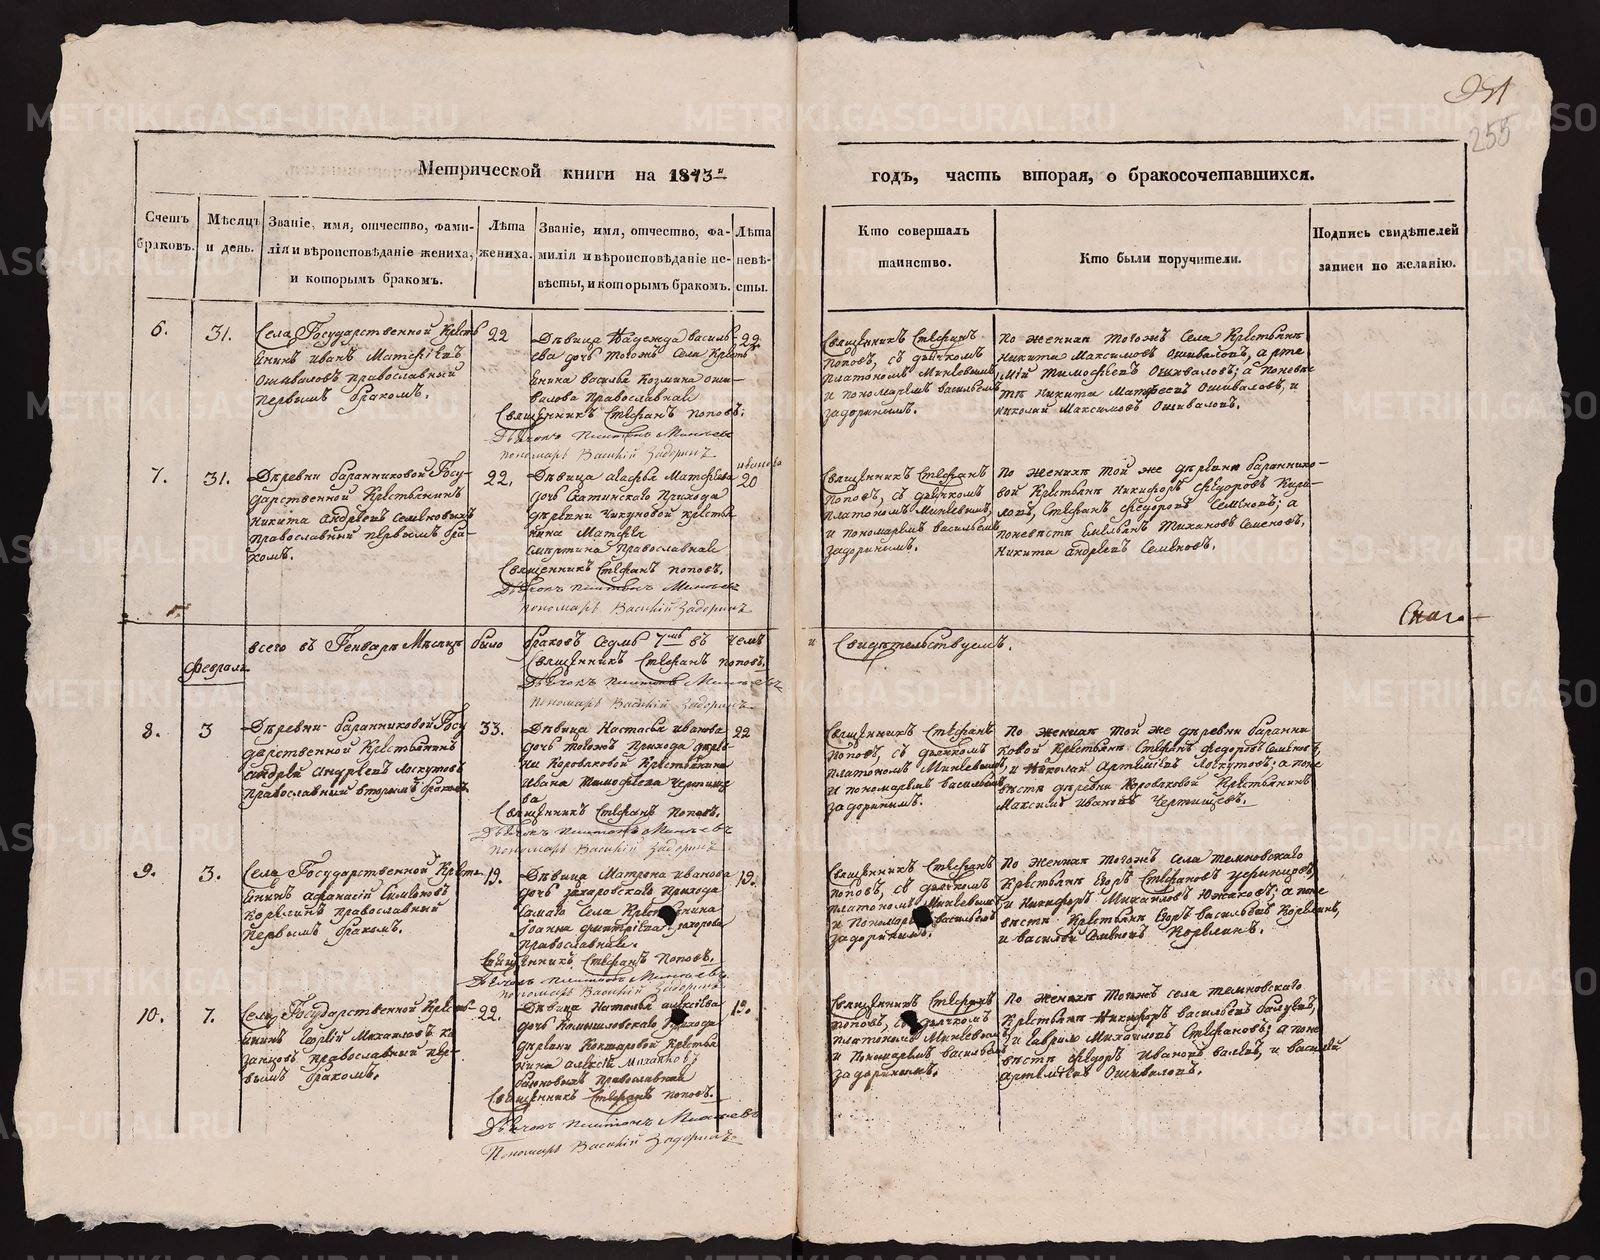 251
255
Метрической книги на 1843й годъ, часть вторая, о бракосочетавшихся.
Счетъ браковъ.
Мѣсяцъ и день.
Званіе, имя, отчество, фами-
лія и вѣроисповѣданіе жениха,
и которымъ бракомъ.
Лѣта
жениха.
Званіе, имя, отчество, фа-
милія и вѣроисповѣданіе не-
вѣсты, и которымъ бракомъ.
Лѣта
невѣ-
сты.
Кто совершалъ
таинство.
Кто были поручители.
Подпись свидѣтелей
записи по желанію.
6.
31.
Села Государственной Кресть
янинъ Иванъ Матфіевъ
Ошиваловъ православный
первымъ бракомъ.
22
Дѣвица Надежда Василь
ева дочь тогожъ села Кресть
янина Василья Козмина Оши-
валова православная
22
Священникъ Стефанъ Поповъ.
Дьячокъ Платонъ Минѣевъ
пономарь Василій Задоринъ
Священникъ Стефанъ
Поповъ, съ дьячкомъ
Платономъ Минѣевымъ,
и пономаремъ Васильемъ
Задоринымъ.
По женихѣ тогожъ села Крестьяне
Никита Максимовъ Ошиваловъ, Арте
мій Тимофѣевъ Ошиваловъ; а по невѣс
тѣ Никита Матвѣевъ Ошиваловъ, и
Николай Максимовъ Ошиваловъ.
7.
31.
Деревни Баранниковой Госу-
дарственной Крестьянинъ
Никита Андреевъ Семеновыхъ
православный первымъ бра-
комъ.
22.
Дѣвица Агафья Матфіева
дочь Скатинскаго Прихода
деревни Чикуновой Кресть
янина Матфея
православная
20
Священникъ Стефанъ Поповъ.
Дьячокъ Платонъ Минѣевъ
пономарь Василій Задоринъ
Священникъ Стефанъ
Поповъ, съ дьячкомъ
Платономъ Минѣевымъ,
и пономаремъ Васильемъ
Задоринымъ.
По женихѣ той же деревни Бараннико-
вой Крестьяне Никифоръ Федоровъ Кири-
ловъ, Стефанъ Федоровъ Семеновъ; а
по невѣстѣ Емельянъ Тихановъ Семеновъ,
Никита Андреевъ Семеновъ.
Всего въ Генварѣ Мѣсяцѣ было браковъ Седмь 7мь въ чемъ и Свидѣтельствуемъ.
Священникъ Стефанъ Поповъ.
Дьячокъ Платонъ Минѣевъ
пономарь Василій Задоринъ
Февраль
8.
3
Деревни Баранниковой Госу
дарственной Крестьянинъ
Андрей Андреевъ Лоскутовъ
православный вторымъ бракомъ.
33.
Дѣвица Настасья Иванова
дочь тогожъ прихода дерев-
ни Коровяковой Крестьянина
Ивана Тимофѣева Чертище
ва
22
Священникъ Стефанъ Поповъ.
Дьячокъ Платонъ Минѣевъ
пономарь Василій Задоринъ
Священникъ Стефанъ
Поповъ, съ дьячкомъ
Платономъ Минѣевымъ,
и пономаремъ Васильемъ
Задоринымъ.
По женихѣ той же деревни Баранни
ковой Крестьяне Стефанъ Федоровъ Семеновъ,
и Николай Артемьевъ Лоскутовъ; а по не
вѣстѣ деревни Коровяковой Крестьянинъ
Максимъ Ивановъ Чертищевъ.
9.
3.
Села Государственной Кресть
янинъ Афанасій Симеоновъ
Корелинъ православный
первымъ бракомъ.
19.
Дѣвица Матрона Иванова
дочь Захаровскаго Прихода
самаго села Крестьянина
Іоанна Дмитріева Захарова
православная.
19.
Священникъ Стефанъ Поповъ.
Дьячокъ Платонъ Минѣевъ
пономарь Василій Задоринъ
Священникъ Стефанъ
Поповъ, съ дьячкомъ
Платономъ Минѣевымъ
и Пономаремъ Васильемъ
Задоринымъ.
По женихѣ тогожъ села Темновскаго
Крестьяне Егоръ Стефановъ
и Никифоръ Михайловъ Южаковъ; а по не
вѣстѣ Крестьяне Егоръ Васильевъ Корелинъ,
и Василій Семеновъ Корелинъ.
10.
7.
Села Государственной Кресть
янинъ Георгій Михаиловъ Ка
занцовъ православный пер-
вымъ бракомъ.
22.
Дѣвица Наталья Алексіева
дочь Камышловскаго Прихода
деревни Кокшаровой Крестья
нина Алексѣя Михаилова
православная
19.
Священникъ Стефанъ Поповъ.
Дьячокъ Платонъ Минѣевъ
Пономарь Василій Задоринъ
Священникъ Стефанъ
Поповъ, съ дьячкомъ
Платономъ Минѣевымъ
и Пономаремъ Васильемъ
Задоринымъ.
По женихѣ тогожъ села Темновскаго
Крестьяне Никифоръ Васильевъ
и Гаврило Михайловъ Стефановъ; а по не
вѣстѣ Федоръ Ивановъ и Василій
Артемьевъ Ошиваловъ.
METRIKI.GASO-URAL.RU